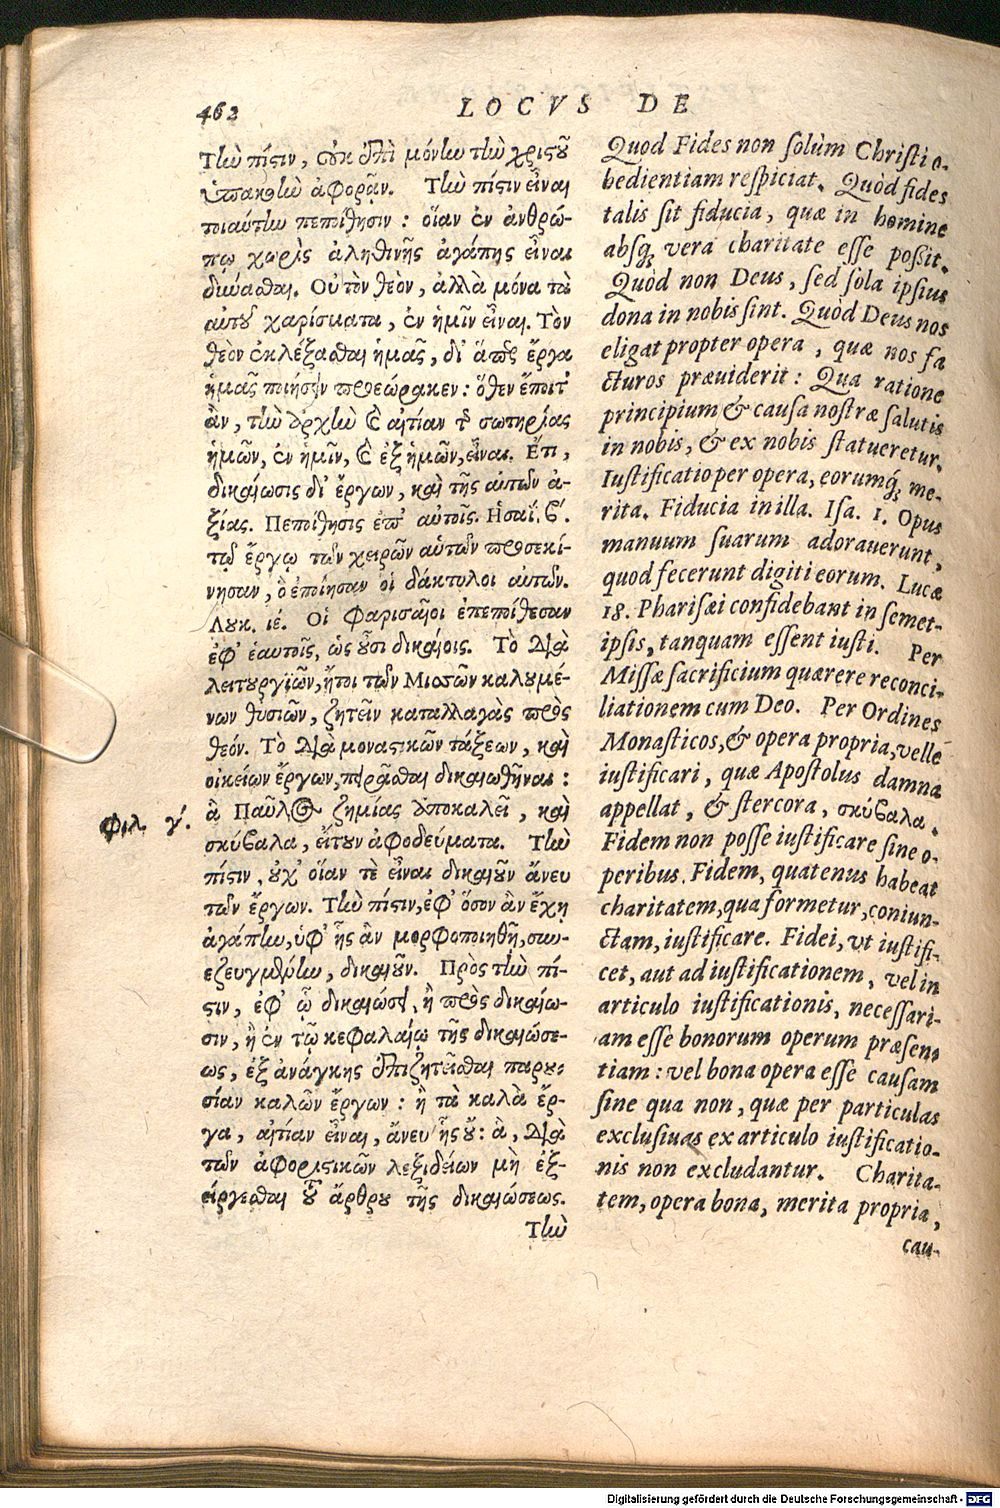 462
LOCVS DE
Τὴν πίστιν, οὐκ ἐπὶ μόνην τὴν χριστοῦ
ὑπακοὴν ἀφορᾷν. Τὴν πίστιν εἶναι
τοιαύτην πεποίθησιν : οἵαν ἐν ἀνθρώ-
πῳ χωρὶς ἀληθινῆς ἀγάπης εἶναι
δύνασθαι. Οὐ τὸν θεὸν, ἀλλὰ μόνα τὰ
αὐτοῦ χαρίσματα, ἐν ἡμῖν εἶναι. Τὸν
θεὸν ἐκλέξασθαι ἡμᾶς, δι' ἅπερ ἔργα
ἡμᾶς ποιήσειν προεώρακεν : ὅθεν ἕποιτ'
ἂν, τὴν ἀρχὴν καὶ αἰτίαν τῆς σωτηρίας
ἡμῶν, ἐν ἡμῖν, καὶ ἐξ ἡμῶν, εἶναι. Ἔτι,
δικαίωσις δι' ἔργων, καὶ τῆς αὐτῶν ἀ-
ξίας. Πεποίθησις ἐπ' αὐτοῖς. Ησαΐ. β'.
τῷ ἔργῳ τῶν χειρῶν αὑτῶν προσεκύ-
νησαν, ὃ ἐποίησαν οἱ δάκτυλοι αὐτῶν.
Λυκ. ιέ. Οἱ Φαρισαῖοι ἐπεποίθεσαν
ἐφ' ἑαυτοῖς, ὡς οὖσι δικαίοις. Τὸ διὰ
λειτουργιῶν, ἤτοι τῶν Μισσῶν καλουμέ-
νων θυσιῶν, ζητεῖν καταλλαγὰς πρὸς
θεόν. Τὸ διὰ μοναστικῶν τάξεων, καὶ
οἰκείων ἔργων, πειρᾶσθαι δικαιωθῆναι :
ἃ Παῦλος ζημίας ἀποκαλεῖ, καὶ
σκύβαλα, εἴτουν ἀφοδεύματα. Τὴν
πίστιν, οὐχ' οἵαν τὲ εἶναι δικαιοῦν ἄνευ
τῶν ἔργων. Τὴν πίστιν, ἐφ' ὅσον ἂν ἔχῃ
ἀγάπην, ὑφ' ἧς ἂν μορφοποιηθῇ, συν-
εζευγμένην, δικαιοῦν. Πρὸς τὴν πί-
στιν, ἐφ' ᾧ δικαιώσῃ, ἢ πρὸς δικαίω-
σιν, ἢ ἐν τῷ κεφαλαίῳ τῆς δικαιώσε-
ως, ἐξ ἀνάγκης ἐπιζητεῖσθαι παρου-
σίαν καλῶν ἔργων : ἢ τὰ καλὰ ἔρ-
γα, αἰτίαν εἶναι, ἄνευ ἧς οὔ : ἃ, διὰ
τῶν ἀφοριστικῶν λεξιδείων μὴ ἐξ-
είργεσθαι τοῦ ἄρθρου τῆς δικαιώσεως.
Τὴν
Φιλ. γ'.
Quod Fides non solùm Christi o-
bedientiam respiciat. Quòd fides
talis sit fiducia, quæ in homine
absq; vera charitate esse possit.
Quòd non Deus, sed sola ipsius
dona in nobis sint. Quòd Deus nos
eligat propter opera, quæ nos fa
cturos præuiderit : Qua ratione
principium & causa nostræ salutis
in nobis, & ex nobis statueretur.
Iustificatio per opera, eorumq; me-
rita. Fiducia in illa. Isa. 1. Opus
manuum suarum adorauerunt,
quod fecerunt digiti eorum. Lucæ
18. Pharisæi confidebant in semet-
ipsis, tanquam essent iusti. Per
Missæ sacrificium quærere reconci-
liationem cum Deo. Per Ordines
Monasticos, & opera propria, velle
iustificari, quæ Apostolus damna
appellat, & stercora, σκύβαλα.
Fidem non posse iustificare sine o-
peribus. Fidem, quatenus habeat
charitatem, qua formetur, coniun-
ctam, iustificare. Fidei, vt iustifi-
cet, aut ad iustificationem, vel in
articulo iustificationis, necessari-
am esse bonorum operum præsen-
tiam : vel bona opera esse causam
sine qua non, quæ per particulas
exclusiuas ex articulo iustificatio-
nis non excludantur. Charita-
tem, opera bona, merita propria,
cau-
Digitalisierung gefördert durch die Deutsche Forschungsgemeinschaft - DFG